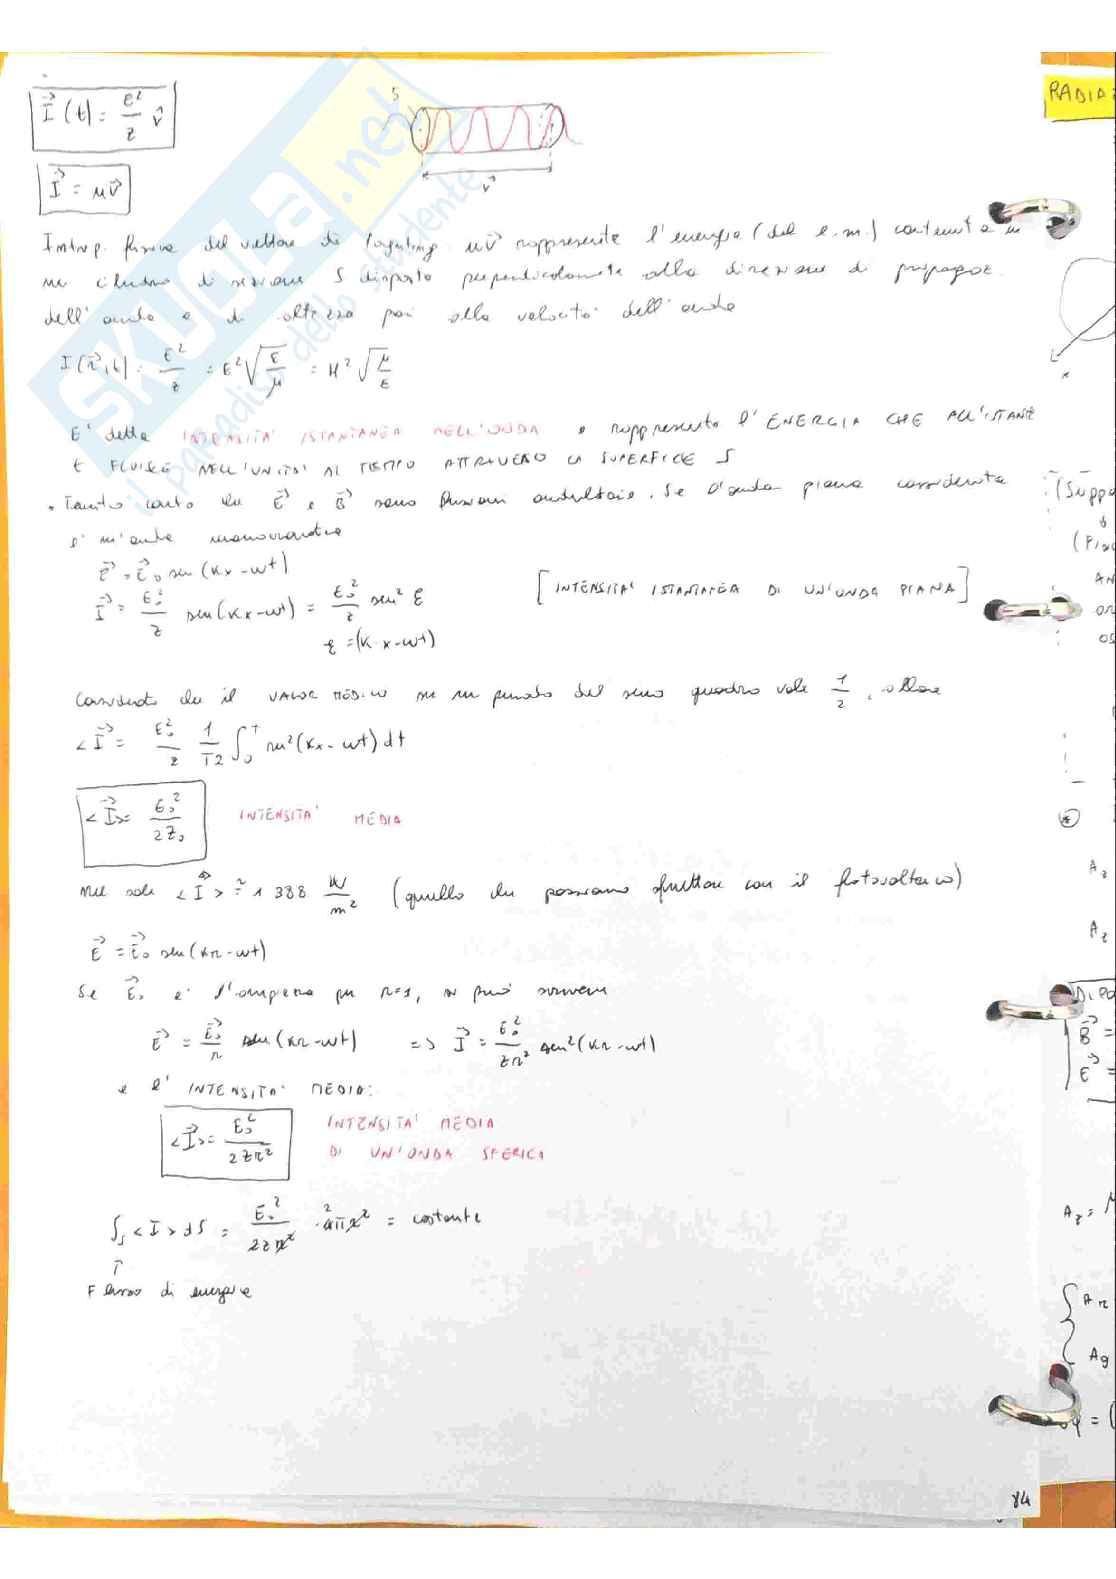 I⃗(t) = E²/z v̂
S
I⃗ = μv⃗
v⃗
RADIAZ
Interp. fisica del vettore di Poynting. μv⃗ rappresenta l'energia (del c.m.) contenuta in
un cilindro di sezione S disposto perpendicolarmente alla direzione di propagaz.
dell'onda e di altezza pari alla velocità dell'onda
I(r⃗,t) = E²/z = E²√(ε/μ) = H²√(μ/ε)
E' detta INTENSITA' ISTANTANEA DELL'ONDA e rappresenta l'ENERGIA CHE ALL'ISTANTE
t FLUISCE NELL'UNITA' DI TEMPO ATTRAVERSO LA SUPERFICIE S
• Tenuto conto che E⃗ e B⃗ sono funzioni ondulatorie. Se l'onda piana considerata
e' un'onda monocromatica
E⃗ = E⃗₀ sen(kx-wt)
I⃗ = E₀²/z sen(kx-wt) = E₀²/z sen² ξ
[INTENSITA' ISTANTANEA DI UN'ONDA PIANA]
ξ = (k·x-wt)
Considerato che il VALOR MEDIO in un periodo del seno quadro vale 1/2, allora
<I⃗ = E₀²/z 1/T2 ∫₀ᵀ sen²(kx-wt)dt
<I⃗> = E₀²/2Z₀ INTENSITA' MEDIA
Nel sole <I⃗> ≅ 1388 W/m² (quello che possiamo sfruttare con il fotovoltaico)
E⃗ = E⃗₀ sen(kr-wt)
Se E⃗₀ e' l'ampiezza per r=1, si può scrivere
E⃗ = E⃗₀/r sen(kr-wt) => I⃗ = E₀²/zr² sen²(kr-wt)
e l'INTENSITA' MEDIA:
<I⃗> = E₀²/2zr² INTENSITA' MEDIA
DI UN'ONDA SFERICA
∫ₛ<I>dS = E₀²/2zr² · 4πr² = costante
↑
Flusso di energia
84
skuola.net
il paradiso dello studente